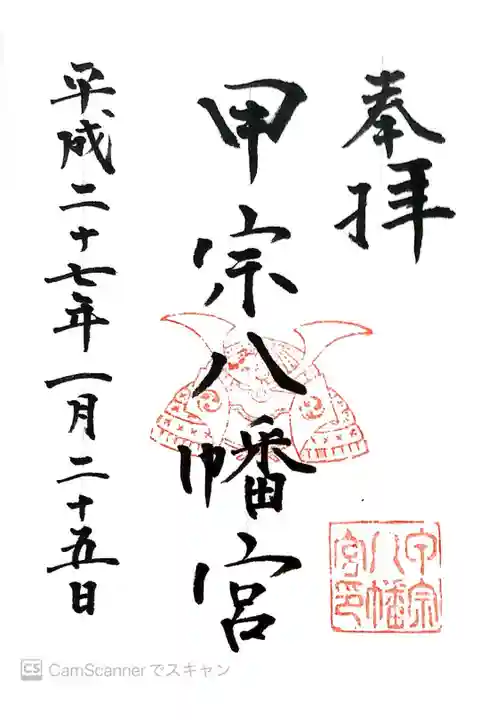 奉拝
甲宗八幡宮
平成二十七年一月二十五日
甲宗
八幡
宮印
CS CamScannerでスキャン